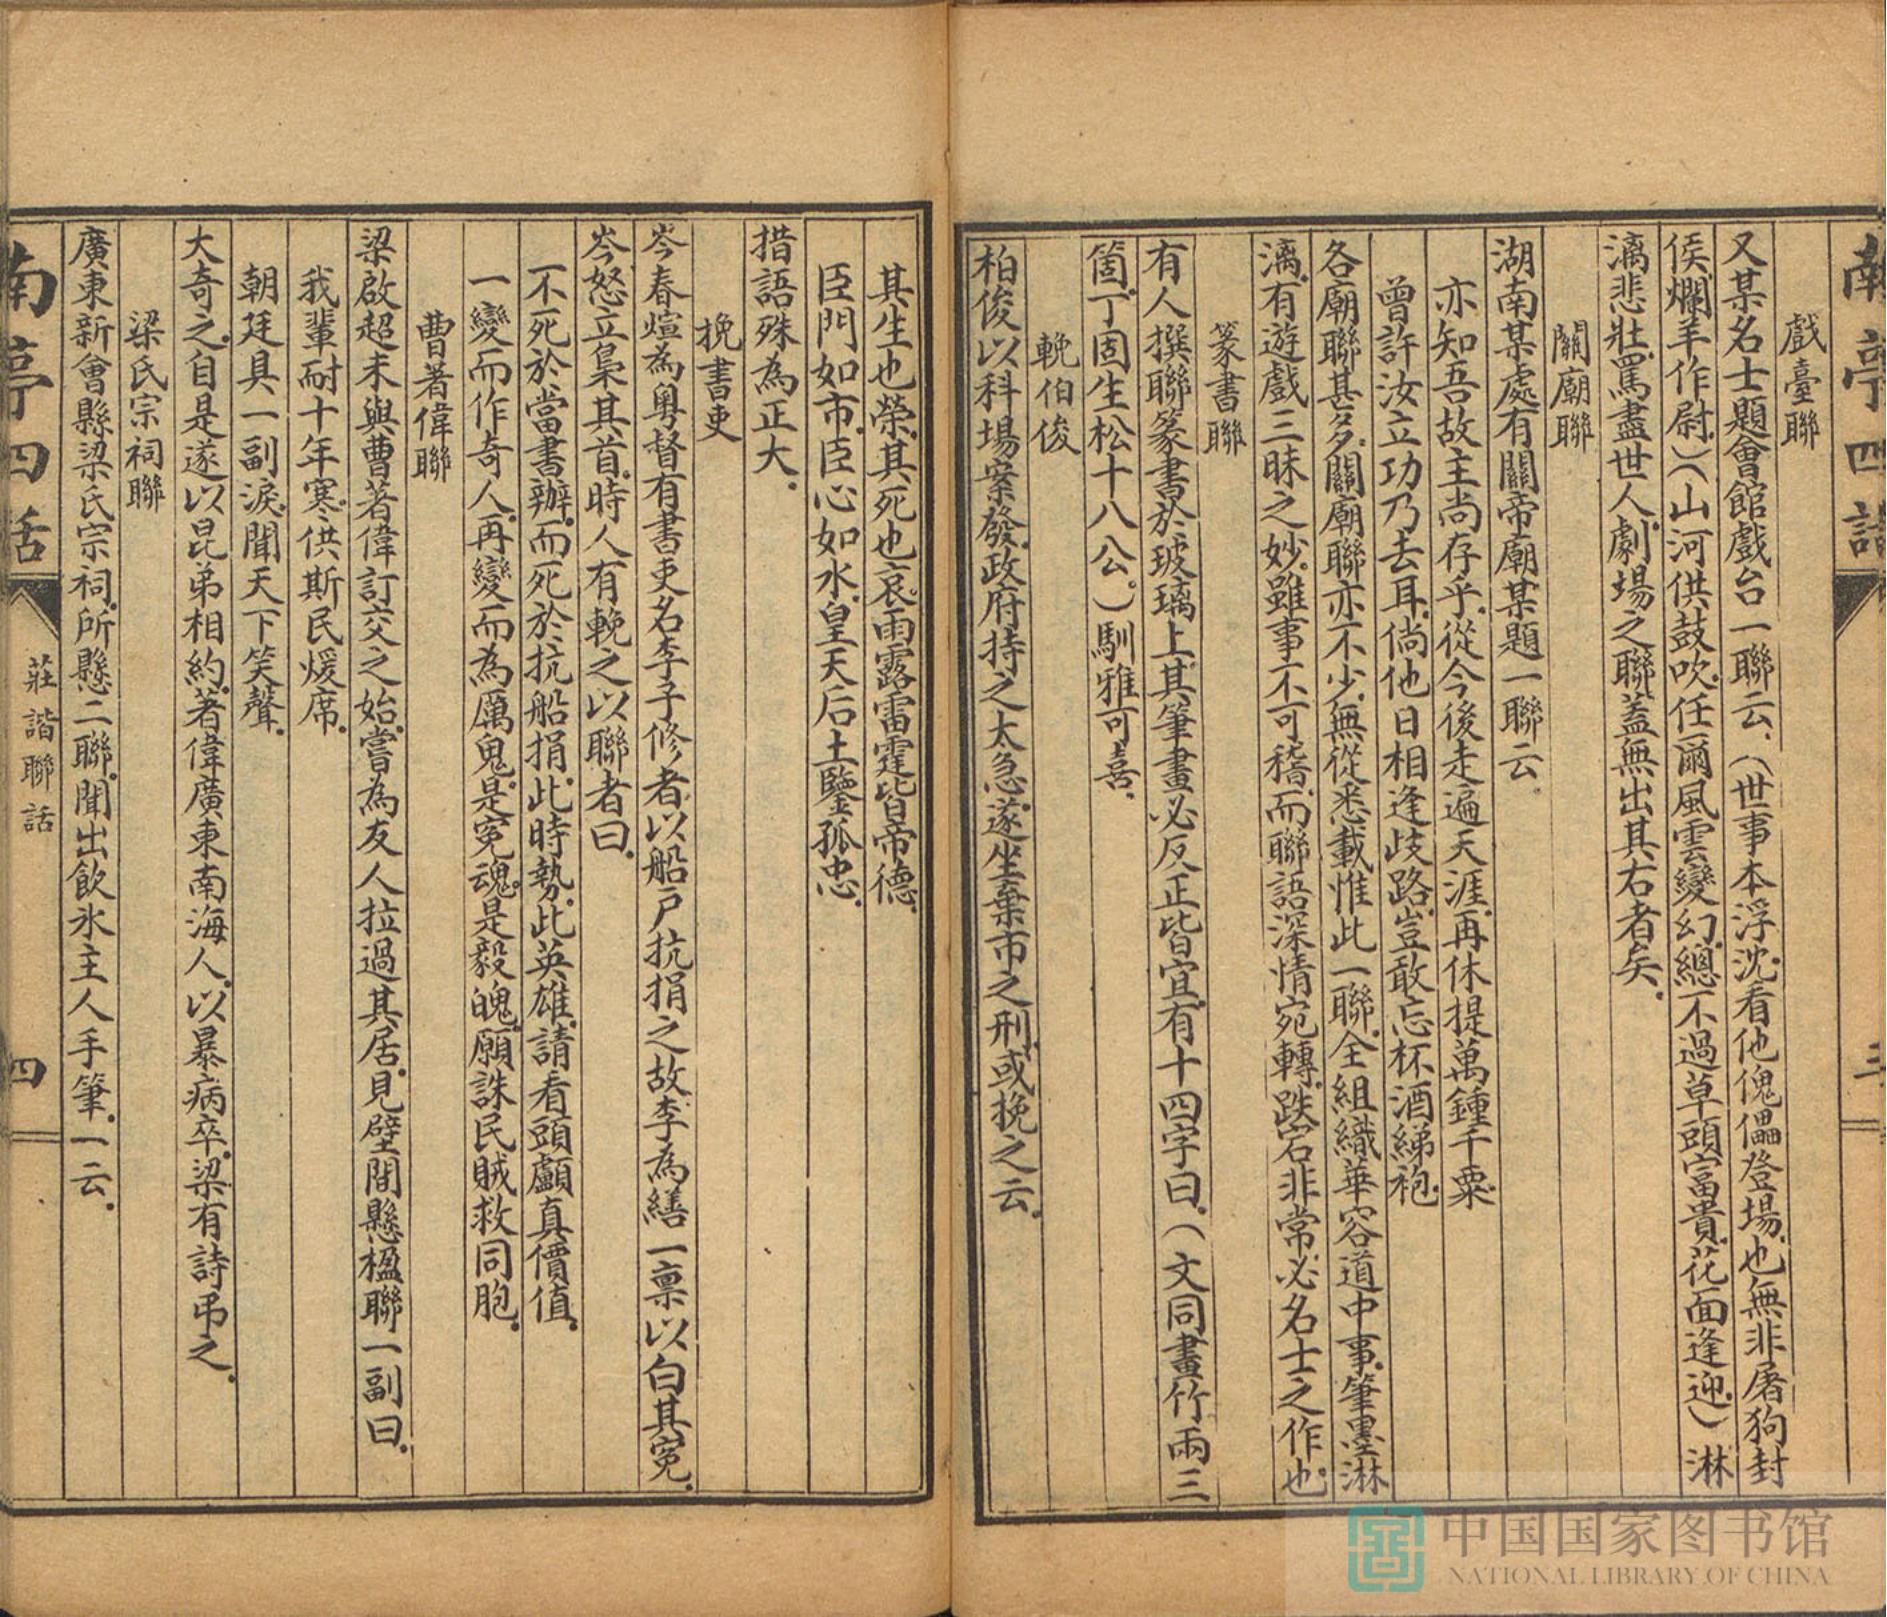 南亭四話
三
戲臺聯
又某名士題會館戲台一聯云、(世事本浮沈。看他傀儡登場。也無非屠狗封
侯。爛羊作尉。)(山河供鼓吹。任爾風雲變幻。總不過草頭富貴。花面逢迎。)淋
漓悲壯。罵盡世人。劇場之聯。蓋無出其右者矣。
關廟聯
湖南某處有關帝廟某題一聯云。
亦知吾故主尚存乎。從今後走遍天涯。再休提萬鍾千粟。
曾許汝立功乃去耳。倘他日相逢歧路。豈敢忘杯酒綈袍。
各廟聯甚多。關廟聯亦不少。無從悉載。惟此一聯。全組織華容道中事。筆墨淋
漓。有遊戲三昧之妙。雖事不可稽。而聯語深情宛轉。跌宕非常。必名士之作也。
篆書聯
有人撰聯篆書於玻璃上。其筆畫必反正皆宜。有十四字曰。(文同畫竹兩三
箇。丁固生松十八公。)馴雅可喜。
輓伯俊
柏俊以科場案發。政府持之太急。遂坐棄市之刑。或挽之云。
其生也榮。其死也哀。雨露雷霆皆帝德。
臣門如市。臣心如水。皇天后土鑒孤忠。
措語殊為正大。
挽書吏
岑春煊為粵督。有書吏名李子修者。以船戶抗捐之故。李為繕一禀以白其冤。
岑怒。立梟其首。時人有輓之以聯者曰。
不死於當書辦。而死於抗船捐。此時勢。此英雄。請看頭顱真價值。
一變而作奇人。再變而為厲鬼。是冤魂。是毅魄。願誅民賊救同胞。
曹著偉聯
梁啟超未與曹著偉訂交之始。嘗為友人拉過其居。見壁間懸楹聯一副曰。
我輩耐十年寒。供斯民煖席。
朝廷具一副淚。聞天下笑聲。
大奇之。自是遂以昆弟相約。著偉廣東南海人。以暴病卒。梁有詩弔之。
梁氏宗祠聯
廣東新會縣梁氏宗祠。所懸二聯。聞出飲氷主人手筆。一云。
南亭四話
莊諧聯話
四
中国国家图书馆
NATIONAL LIBRARY OF CHINA